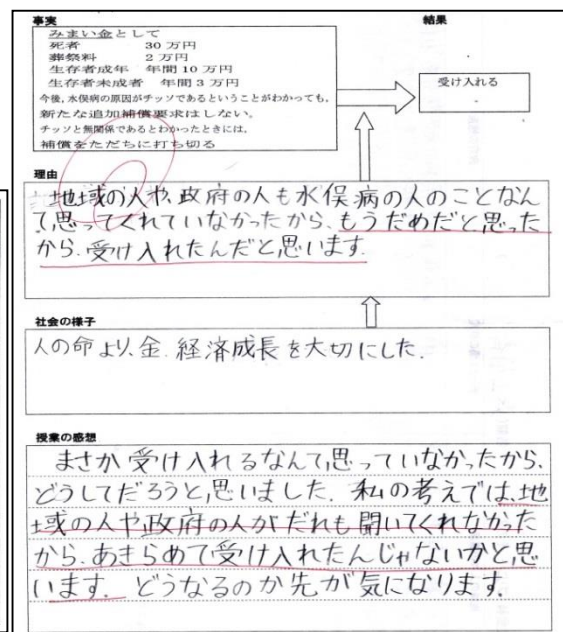 事実
みまい金として
死者 30万円
葬祭料 2万円
生存者成年 年間10万円
生存者未成者 年間3万円
今後、水俣病の原因がチッソであるということがわかっても、
新たな追加補償要求はしない。
チッソと無関係であるとわかったときには、
補償をただちに打ち切る
結果
受け入れる
理由
地域の人や、政府の人も水俣病の人のことなん
て思ってくれていなかったから、もうだめだと思った
から、受け入れたんだと思います。
社会の様子
人の命より、金、経済成長を大切にした。
授業の感想
まさか受け入れるなんて思っていなかったから、
どうしてだろうと思いました。私の考えでは、地
域の人や政府の人がだれも聞いてくれなかった
から、あきらめて受け入れたんじゃないかと思
います。どうなるのか先が気になります。